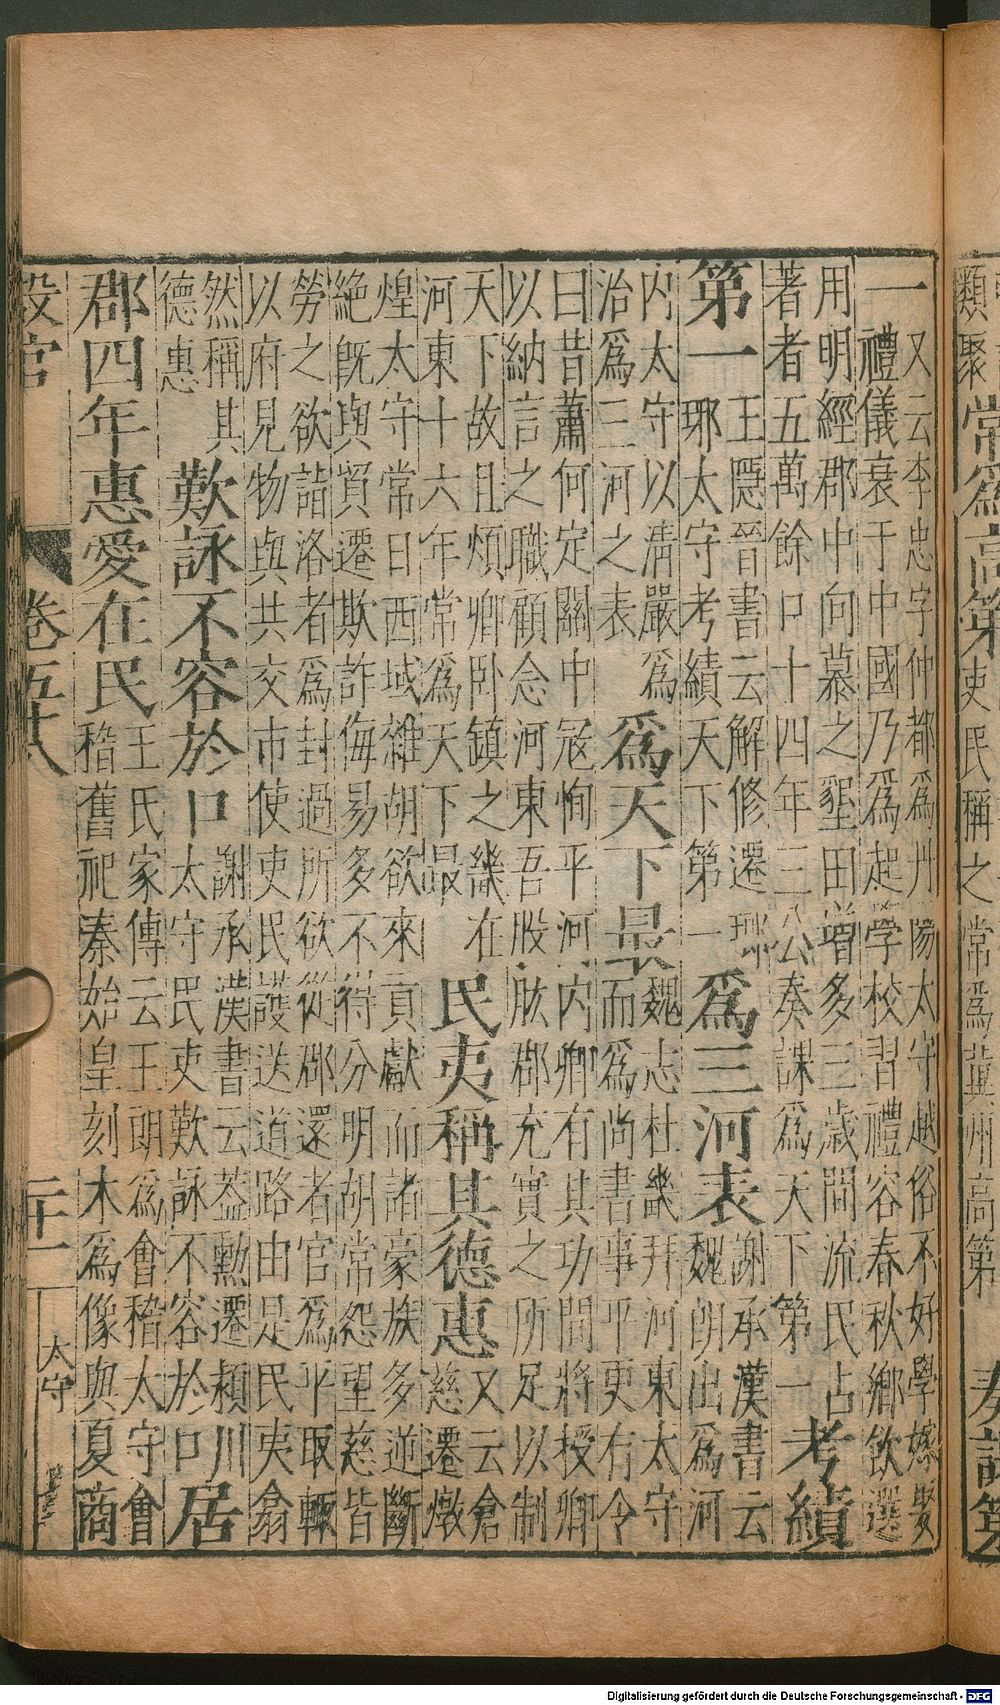 類聚 常爲高第 吏民稱之 常爲冀州高第 奏課第
一 又云李忠字仲都爲丹陽太守越俗不好學嫁娶
禮儀衰于中國乃爲起學校習禮容春秋鄉飲選
用明經郡中向慕之墾田增多三歲間流民占
著者五萬餘口十四年三公奏課爲天下第一 考績
第一 王隱晉書云解修遷瑯
琊太守考績天下第一 爲三河表 謝承漢書云
魏朗出爲河
内太守以清嚴爲
治爲三河之表 爲天下最 魏志杜畿拜河東太守
而爲尚書事平更有令
曰昔蕭何定關中冦恂平河内卿有其功間將授卿
以納言之職顧念河東吾股肱郡充實之所足以制
天下故且煩卿卧鎮之畿在
河東十六年常爲天下最 民夷稱其德惠 又云倉
慈遷燉
煌太守常日西域雜胡欲來貢獻而諸豪族多逆斷
絶旣與貿遷欺詐侮易多不得分明胡常怨望慈皆
勞之欲詣洛者爲封過所欲從郡還者官爲平取輙
以府見物與共交市使吏民護送道路由是民夷翕
然稱其
德惠 歎詠不容於口 謝承漢書云葢勲遷潁川
太守民吏歎詠不容於口 居
郡四年惠愛在民 王氏家傳云王朗爲會稽太守會
稽舊祀秦始皇刻木爲像與夏商
設官 卷五十八 二十一 太守
Digitalisierung gefördert durch die Deutsche Forschungsgemeinschaft - DFG